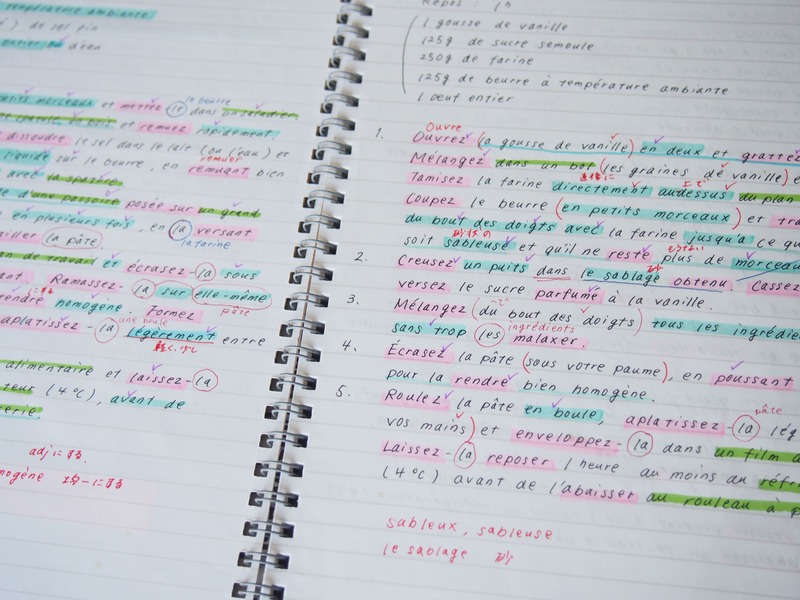 température ambiante
de sel fin
entier d'eau
le beurre
petits morceaux et mettez (la) dans un saladier
spatule en bois et remuez rapidement
dissoudre le sel dans le lait (ou l'eau) et
remuer
liquide sur le beurre, en remuant bien
avec la spatule
d'une passoire posée sur un grand
en plusieurs fois, en (la) versant
la farine
(la pâte)
plan de travail et écrasez-(la) sous
Ramassez-(la) sur elle-même
にする pâte
rendre homogène. Formez
une boule
aplatissez-(la) légèrement entre
軽く, 少し
alimentaire et laissez-(la)
(4°C), avant de
adjにする
mogène 均一にする
Repos : 1h
1 gousse de vanille
125g de sucre semoule
250g de farine
125g de beurre à température ambiante
1 oeuf entier
Ouvre
1. Ouvrez (la gousse de vanille) en deux et grattez
Mélangez dans un bol (les graines de vanille)
直接に 上で
Tamisez la farine directement au dessus du plan
Coupez le beurre (en petits morceaux) et
du bout des doigts avec la farine jusqu'à ce
砂状の
soit sableuse et qu'il ne reste plus de morceau
2. Creusez un puits dans le sablage obtenu. Cassez
砂
versez le sucre parfumé à la vanille.
3. Mélangez (du bout des doigts) tous les
ingrédients
sans trop (les) malaxer.
4. Écrasez la pâte (sous votre paume), en poussant
pour la rendre bien homogène.
pâte
5. Roulez la pâte en boule, aplatissez-(la)
vos mains) et enveloppez-(la) dans un film
Laissez-(la) reposer 1 heure au moins au
(4°C) avant de l'abaisser au rouleau à
sableux, sableuse
le sablage 砂